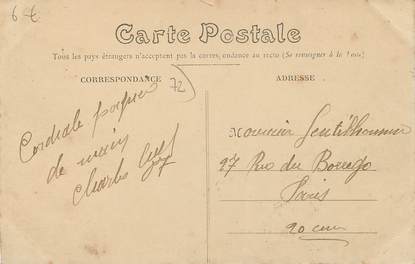 6 €
Carte Postale
Tous les pays étrangers n'acceptent pas la correspondance au recto (Se renseigner à la Poste)
CORRESPONDANCE
72
Cordiale poignée
de main
Charles
ADRESSE
Monsieur Gentilhomme
27 Rue du Borrégo
Paris
20 em